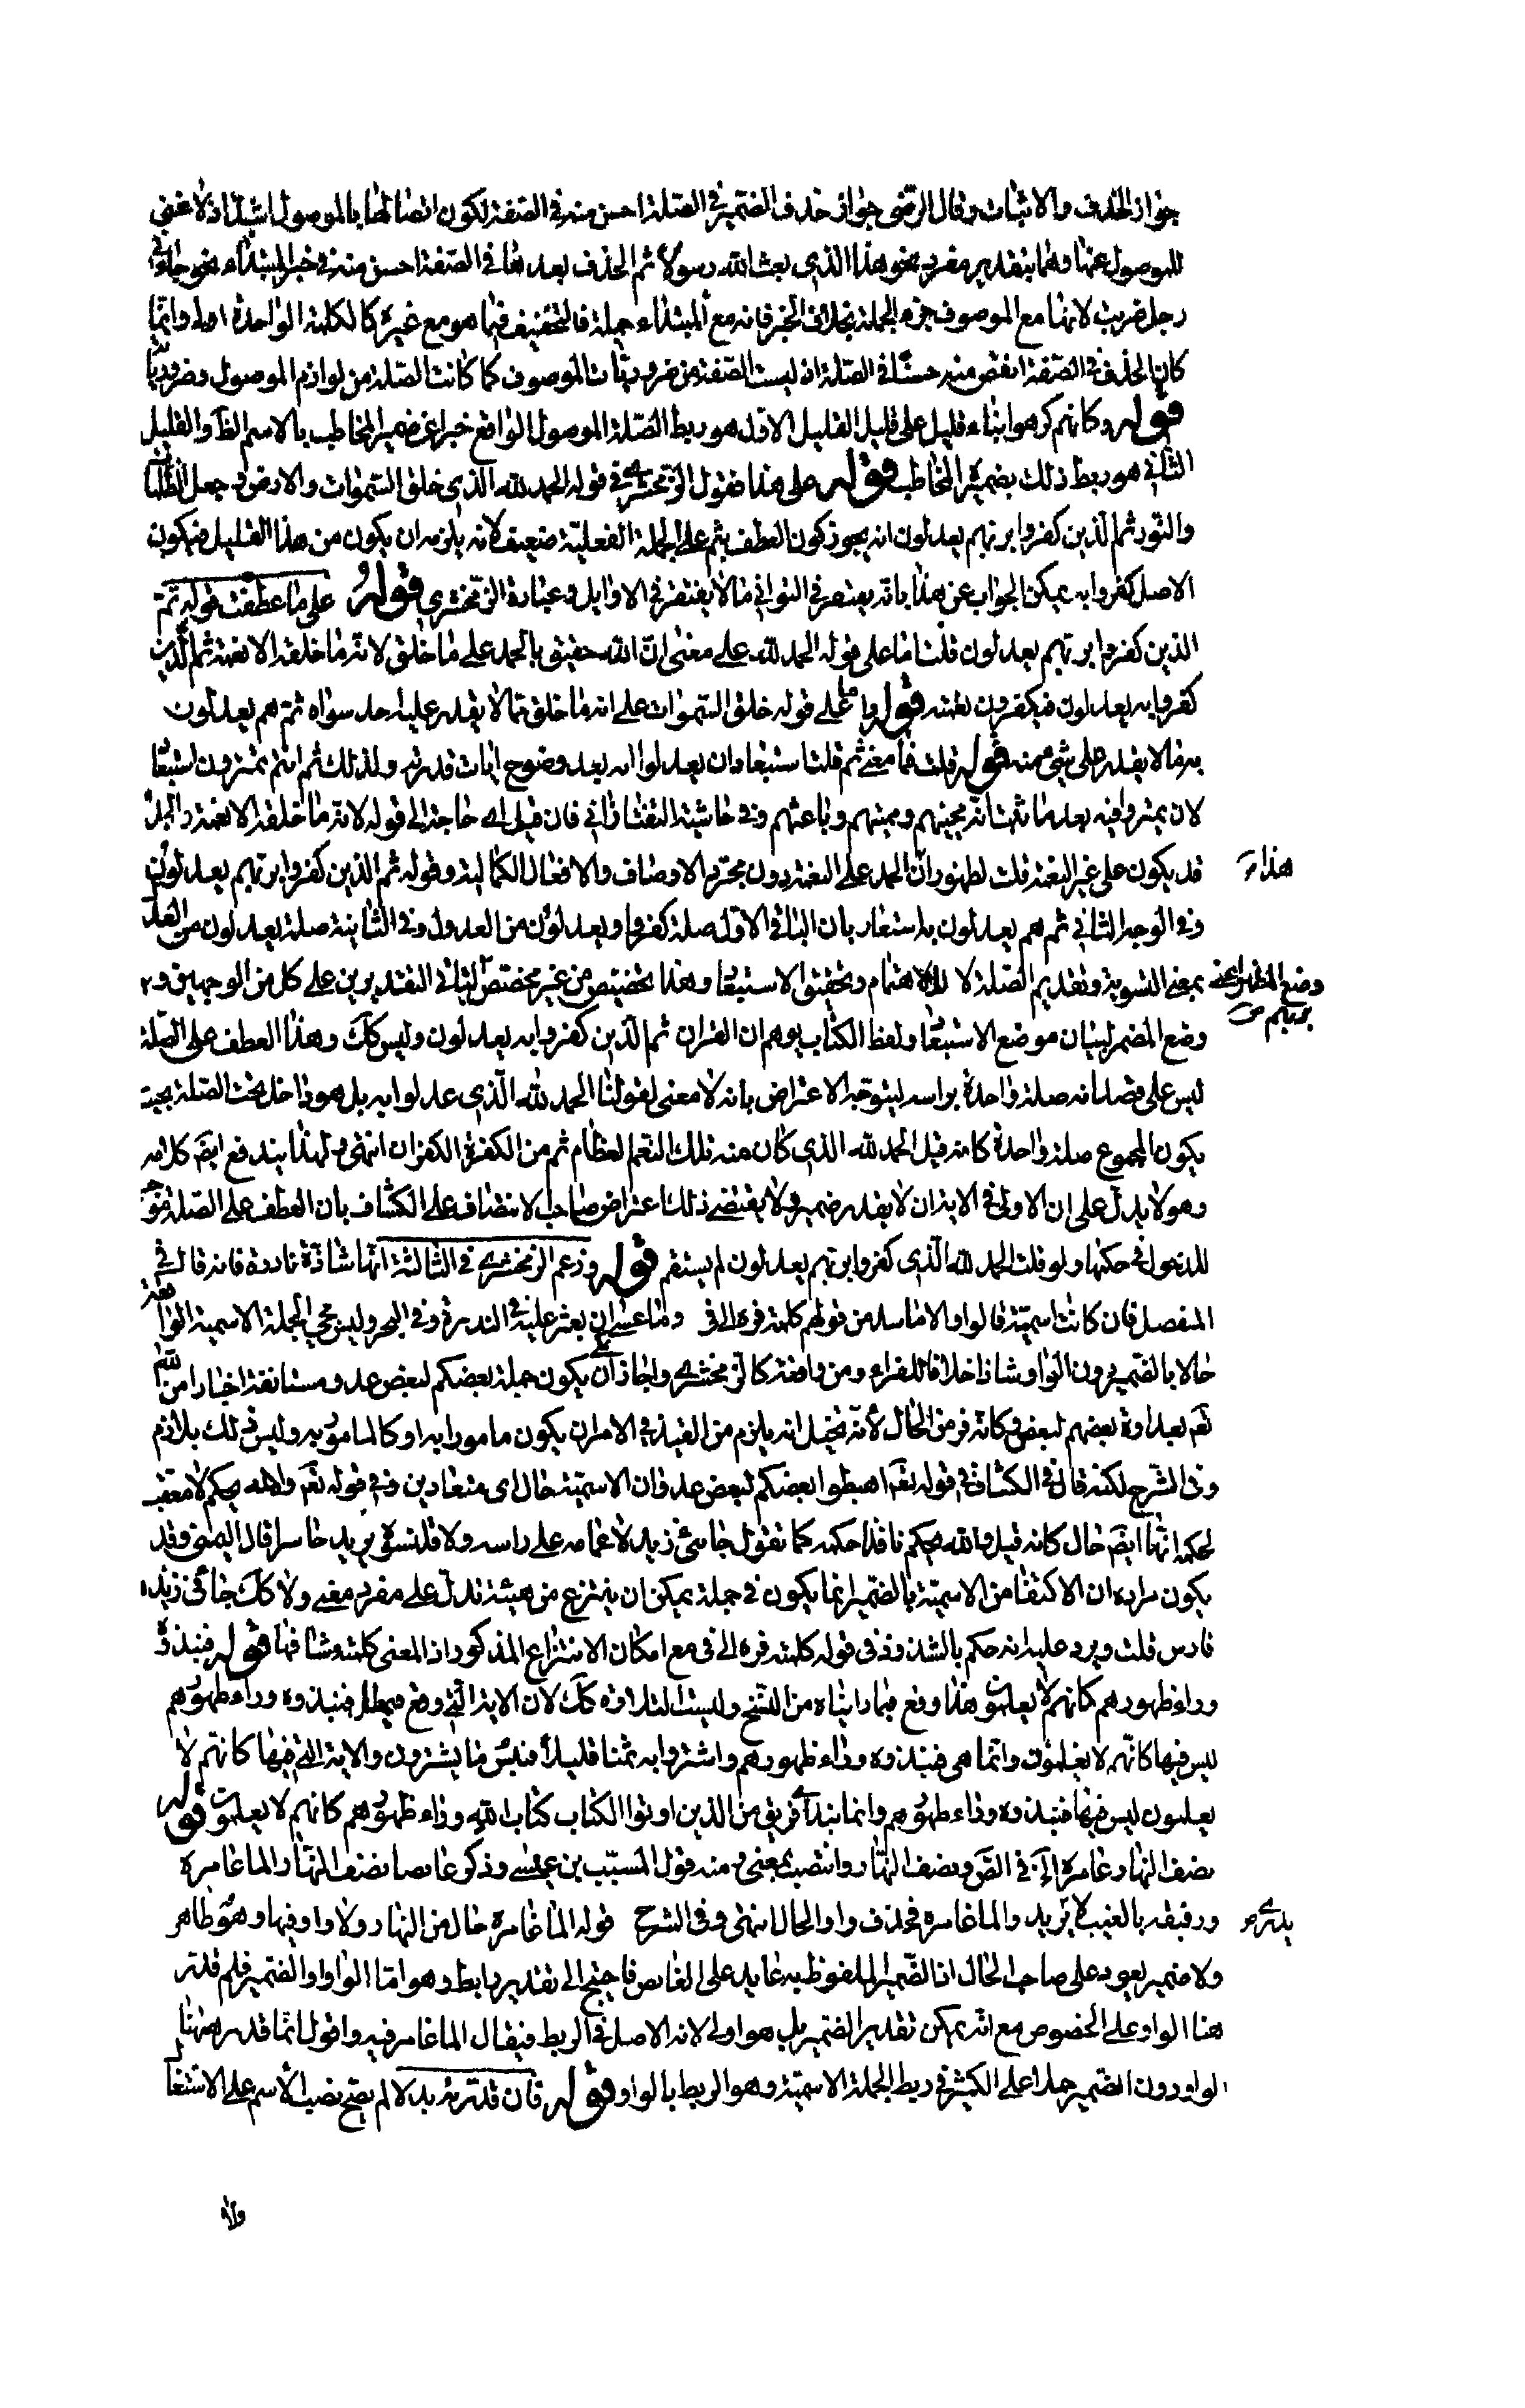 جواز الحذف والاثبات وقال الرضى جواز حذف الضمير فى الصلة احسن منه فى الصفة لكون اتصالها بالموصول اشد اذ لا غنى
للموصول عنها وهما بتقدير مفرد نحو هذا الذى بعث الله رسولا ثم الحذف بعد هذا فى الصفة احسن منه فى خبر المبتداء نحو جاءنى
رجل ضربت لانها مع الموصوف جزء الجملة بخلاف الخبر فانه مع المبتداء جملة فالتخفيف فيما هو مع غيره كالكلمة الواحدة اولى وانما
كان الحذف فى الصفة انقص منه حسنا فى الصلة اذ ليست الصفة من ضروريات الموصوف كما كانت الصلة من لوازم الموصول وضرورياته
قوله وكانهم كرهوا بناء قليل على قليل القليل الاول هو ربط الصلة الموصول الواقع خبرا عن ضمير المخاطب بالاسم الظ والقليل
الثانى هو ربط ذلك بضمير المخاطب قوله على هذا فقول الزمخشرى فى قوله الحمد لله الذى خلق السموات والارض وجعل الظلمات
والنور ثم الذين كفروا بربهم يعدلون انه يجوز كون العطف بثم على الجملة الفعلية ضعيف لانه يلزمه ان يكون من هذا القليل فيكون
الاصل كفروا به يمكن الجواب عن هذا بانه يغتفر فى الثوانى ما لا يغتفر فى الاوايل وعبارة الزمخشرى قوله على ما عطفت قوله ثم
الذين كفروا بربهم يعدلون قلت اما على قوله الحمد لله على معنى ان الله حقيق بالحمد على ما خلق لانه ما خلقه الا نعمة ثم الذين
كفروا به يعدلون فيكفرون نعمته قوله واما على قوله خلق السموات على انه ما خلق مما لا يقدر عليه احد سواه ثم هم يعدلون
به ما لا يقدر على شئ منه قوله قلت فما معنى ثم قلت استبعاد ان يعدلوا به بعد وضوح ايات قدرته ولذلك ثم انتم تمترون استبعاد
لان يمتروا فيه بعد ما ثبت انه محييهم ومميتهم وباعثهم وفى حاشية التفتازانى فان قيل اى حاجة الى قوله لانه ما خلقه الا نعمة والحمد
قد يكون على غير النعمة قلت لظهور ان الحمد على النعمة دون مجرد الاوصاف والافعال الكمالية وقوله ثم الذين كفروا بربهم يعدلون
هذا
وفى الوجه الثانى ثم هم يعدلون به اشعار بان الباء فى الاول صلة كفروا ويعدلون من العدول وفى الثانية صلة يعدلون من العدل
بمعنى التسوية وتقديم الصلة للاهتمام وتحقيق الاستبعاد وهذا تخصيص من غير مخصص لتاتى التقديرين على كل من الوجهين و
وضع المظهر اعنى
بربهم
وضع المضمر لبيان موضع الاستبعاد ولفظ الكتاب يوهم ان القران ثم الذين كفروا به يعدلون وليس كك وهذا العطف على الصلة
ليس على قصد انه صلة واحدة براسه ليتوجه الاعتراض بانه لا معنى لقولنا الحمد لله الذى عدلوا به بل هو داخل تحت الصلة بحيث
يكون المجموع صلة واحدة كانه قيل الحمد لله الذى كان منه تلك النعم العظام ثم من الكفرة الكفران انتهى ولهذا يندفع ايضَ كلامه
وهو لا يدل على ان الاولى فى الاية ان لا يقدر ضمير ولا يقتضى ذلك اعتراض صاحب الانتصاف على الكشاف بان العطف على الصلة موجب
للدخول فى حكمها ولو قلت الحمد لله الذى كفروا بربهم يعدلون لم يستقم قوله وزعم الزمخشرى فى الثالثة انها شاذة نادرة فانه قال فى
المفصل فان كانت اسمية فالواو الا ما شذ من قولهم كلمته فوه الى فى وما عسى ان يعثر عليه فى الندرة وفى البحر وليس مجئ الجملة الاسمية الواقعة
حالا بالضمير دون الواو شاذا خلافا للفراء ومن وافقه كالزمخشرى واجاز مكى ان يكون جملة بعضكم لبعض عدو مستانفة اخبارا من الله
تعَ بعداوة بعضهم لبعض وكانه فر من الحال لانه تخيل انه يلزم من القيد فى الامر ان يكون مامورا به او كالمامور به وليس ذلك بلازم
وفى الشرح لكنه قال فى الكشاف فى قوله تعَ اهبطوا بعضكم لبعض عدو ان الاسمية حال اى متعادين وفى قوله تعَ والله يحكم لا معقب
لحكمه انها ايضَ حال كانه قيل والله يحكم نافذا حكمه كما تقول جاءنى زيد لا عمامه على راسه ولا قلنسوة يريد حاسرا قال اليمنى وقد
يكون مراده ان الاكتفا من الاسمية بالضمير انما يكون فى جملة يمكن ان ينتزع من هيئة تدل على مفرد معنى ولا كك جائنى زيد
فارس قلت ويرد عليه انه حكم بالشذوذ فى قوله كلمته فوه الى فى مع امكان الانتزاع المذكور اذ المعنى كلمته مشافها قوله فنبذوه
وراء ظهورهم كانهم لا يعلمون هذا وقع فيما رايناه من النسخ وليست التلاوة كك لان الاية التى وقع فيها فنبذوه وراء ظهورهم
ليس فيها كانهم لا يعلمون وانما هى فنبذوه وراء ظهورهم واشتروا به ثمنا قليلا فبئس ما يشترون والاية التى فيها كانهم لا
يعلمون ليس فيها فنبذوه وراء ظهورهم وانما نبذ فريق من الذين اوتوا الكتاب كتاب الله وراء ظهورهم كانهم لا يعلمون قوله
نصف النهار غامره فى الصَ ونصف النهار وانتصف بمعنى ومنه قول المسيب بن عيسى وذكر غائصا نصف النهار الماء غامره
ورفيقه بالغيب لا يريد والماء غامره فحذف واو الحال انتهى وفى الشرح قوله الماء غامره حال من النهار ولا واو فيها وهو ظاهر
يدرى
ولا ضمير يعود على صاحب الحال اذ الضمير الملفوظ به عايد على الغايص فاحتيج الى تقدير رابط وهو اما الواو او الضمير فلم قدر
هنا الواو على الخصوص مع انه يمكن تقدير الضمير بل هو اولى لانه الاصل فى الربط فيقال الماء غامره فيه واقول انما قدر ههنا
الواو دون الضمير حملا على الكثير فى ربط الجملة الاسمية وهو الربط بالواو قوله فان قدرته بدلا لم يصح نصب الاسم على الاشتغال